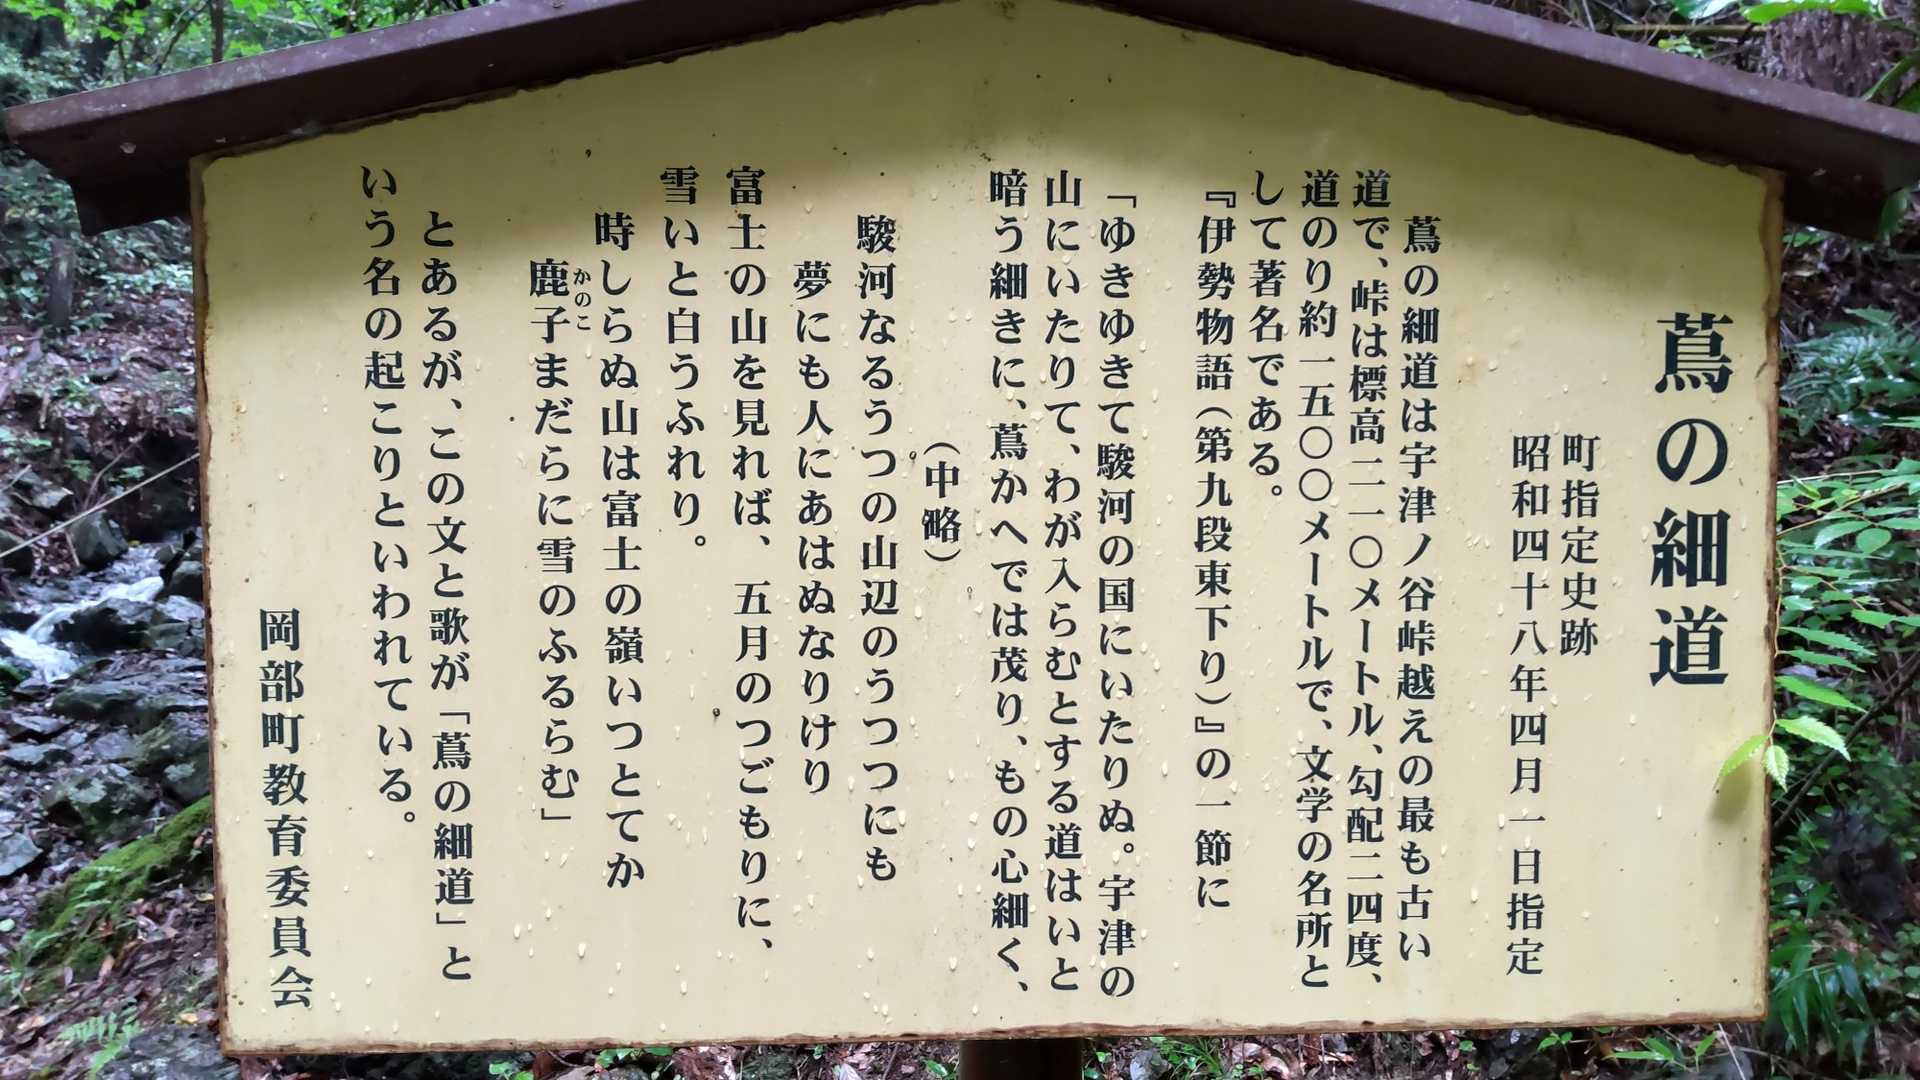 蔦の細道
町指定史跡
昭和四十八年四月一日指定
蔦の細道は宇津ノ谷峠越えの最も古い
道で、峠は標高二一〇メートル、勾配二四度、
道のり約一五〇〇メートルで、文学の名所と
して著名である。
『伊勢物語(第九段東下り)』の一節に
「ゆきゆきて駿河の国にいたりぬ。宇津の
山にいたりて、わが入らむとする道はいと
暗う細きに、蔦かへでは茂り、もの心細く、
(中略)
駿河なるうつの山辺のうつつにも
夢にも人にあはぬなりけり
富士の山を見れば、五月のつごもりに、
雪いと白うふれり。
時しらぬ山は富士の嶺いつとてか
かのこ
鹿子まだらに雪のふるらむ」
とあるが、この文と歌が「蔦の細道」と
いう名の起こりといわれている。
岡部町教育委員会